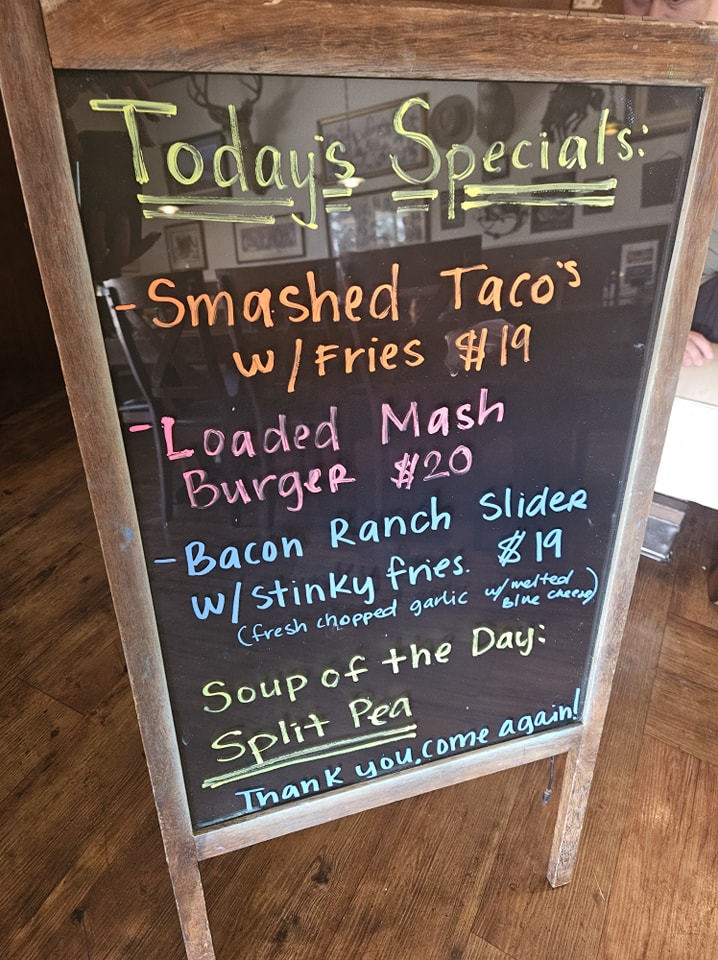 Today's Specials:
- Smashed Taco's
w/Fries $19
- Loaded Mash
Burger $20
- Bacon Ranch Slider
w/stinky fries. $19
(fresh chopped garlic w/melted
blue cheese)
Soup of the Day:
Split Pea
Thank you, come again!